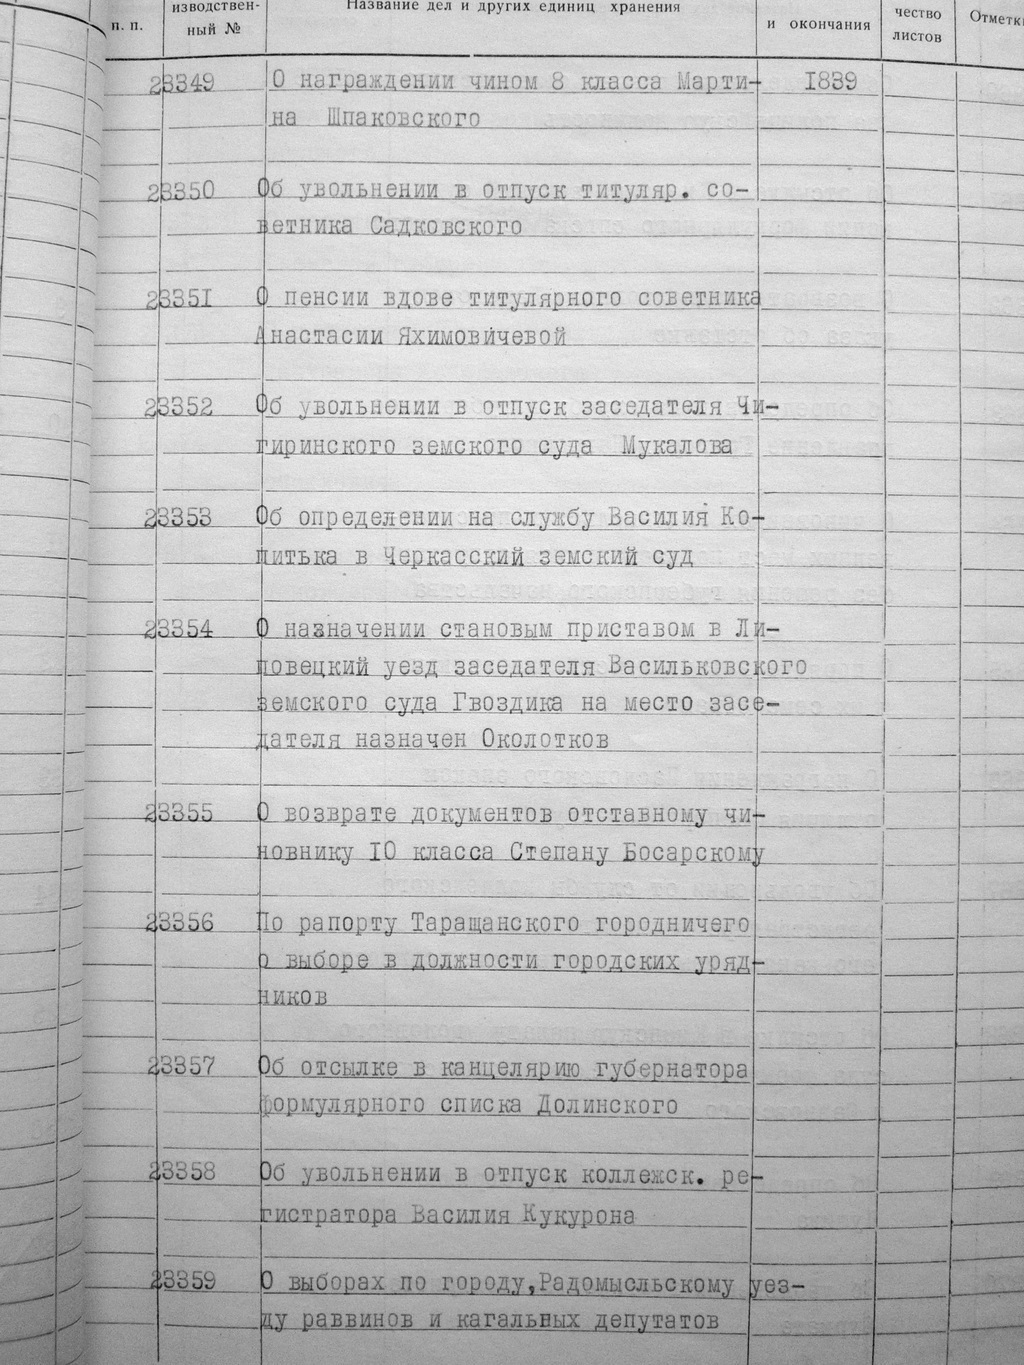 п. п.
изводствен-
ный №
Название дел и других единиц хранения
и окончания
чество
листов
Отметк
23349 О награждении чином 8 класса Марти- 1839
на Шпаковского
23350 Об увольнении в отпуск титуляр. со-
ветника Садковского
23351 О пенсии вдове титулярного советника
Анастасии Яхимовичевой
23352 Об увольнении в отпуск заседателя Чи-
гиринского земского суда Мукалова
23353 Об определении на службу Василия Ко-
питька в Черкасский земский суд
23354 О назначении становым приставом в Ли-
повецкий уезд заседателя Васильковского
земского суда Гвоздика на место засе-
дателя назначен Околотков
23355 О возврате документов отставному чи-
новнику 10 класса Степану Босарскому
23356 По рапорту Таращанского городничего
о выборе в должности городских уряд-
ников
23357 Об отсылке в канцелярию губернатора
формулярного списка Долинского
23358 Об увольнении в отпуск коллежск. ре-
гистратора Василия Кукурона
23359 О выборах по городу,Радомысльскому уез-
ду раввинов и кагальных депутатов